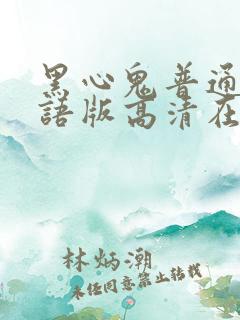 黑心鬼普通
語版高清在
林炳潮
未经同意禁止转载